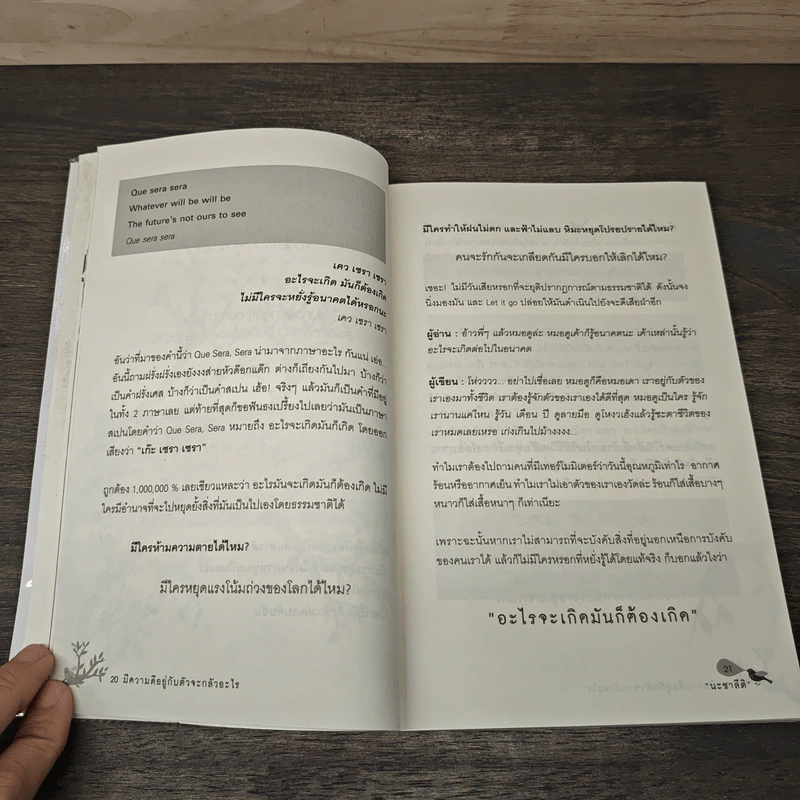 Que sera sera
Whatever will be will be
The future's not ours to see
Que sera sera
เคว เซรา เซรา
อะไรจะเกิด มันก็ต้องเกิด
ไม่มีใครจะหยั่งรู้อนาคตได้หรอกนะ
เคว เซรา เซรา
อันว่าที่มาของคำนี้ว่า Que Sera, Sera น่ามาจากภาษาอะไร กันแน่ เอ่อ
อันนี้ถามฝรั่งฝรั่งเองยังงงส่ายหัวด๊อกแด๊ก ต่างก็เถียงกันไปมา บ้างก็ว่า
เป็นคำฝรั่งเศส บ้างก็ว่าเป็นคำสเปน เฮ้อ! จริงๆ แล้วมันก็เป็นคำที่มีอยู่
ในทั้ง 2 ภาษาเลย แต่ท้ายที่สุดก็ขอฟันธงเปรี้ยงไปเลยว่ามันเป็นภาษา
สเปนโดยคำว่า Que Sera, Sera หมายถึง อะไรจะเกิดมันก็เกิด โดยออก
เสียงว่า "เก๊ะ เซรา เซรา"
ถูกต้อง 1,000,000 % เลยเชียวแหละว่า อะไรมันจะเกิดมันก็ต้องเกิด ไม่มี
ใครมีอำนาจที่จะไปหยุดยั้งสิ่งที่มันเป็นไปเองโดยธรรมชาติได้
มีใครห้ามความตายได้ไหม?
มีใครหยุดแรงโน้มถ่วงของโลกได้ไหม?
20 มีความดีอยู่กับตัวจะกลัวอะไร
มีใครทำให้ฝนไม่ตก และฟ้าไม่แลบ หิมะหยุดโปรยปรายได้ไหม?
คนจะรักกันจะเกลียดกันมีใครบอกให้เลิกได้ไหม?
เชอะ! ไม่มีวันเสียหรอกที่จะยุติปรากฏการณ์ตามธรรมชาติได้ ดังนั้นจง
นิ่งมองมัน และ Let it go ปล่อยให้มันดำเนินไปยังจะดีเสียฝ่าอีก
ผู้อ่าน : อ้าวพี่ๆ แล้วหมอดูล่ะ หมอดูเค้าก็รู้อนาคตนะ เค้าเหล่านั้นรู้ว่า
อะไรจะเกิดต่อไปในอนาคต
ผู้เขียน : โห่วววว... อย่าไปเชื่อเลย หมอดูก็คือหมอเดา เราอยู่กับตัวของ
เราเองมาทั้งชีวิต เราต้องรู้จักตัวของเราเองได้ดีที่สุด หมอดูเป็นใคร รู้จัก
เรานานแค่ไหน รู้วัน เดือน ปี ดูลายมือ ดูโหงวเฮ้งแล้วรู้ชะตาชีวิตของ
เราหมดเลยเหรอ เก่งเกินไปม้างงงง...
ทำไมเราต้องไปถามคนที่มีเทอร์โมมิเตอร์ว่าวันนี้อุณหภูมิเท่าไร อากาศ
ร้อนหรืออากาศเย็น ทำไมเราไม่เอาตัวของเราเองวัดล่ะ ร้อนก็ใส่เสื้อบางๆ
หนาวก็ใส่เสื้อหนาๆ ก็เท่าเนียะ
เพราะฉะนั้นหากเราไม่สามารถที่จะบังคับสิ่งที่อยู่นอกเหนือการบังคับ
ของคนเราได้ แล้วก็ไม่มีใครหรอกที่หยั่งรู้ได้โดยแท้จริง ก็บอกแล้วไงว่า
"อะไรจะเกิดมันก็ต้องเกิด"
21
"นะชาลีติ"